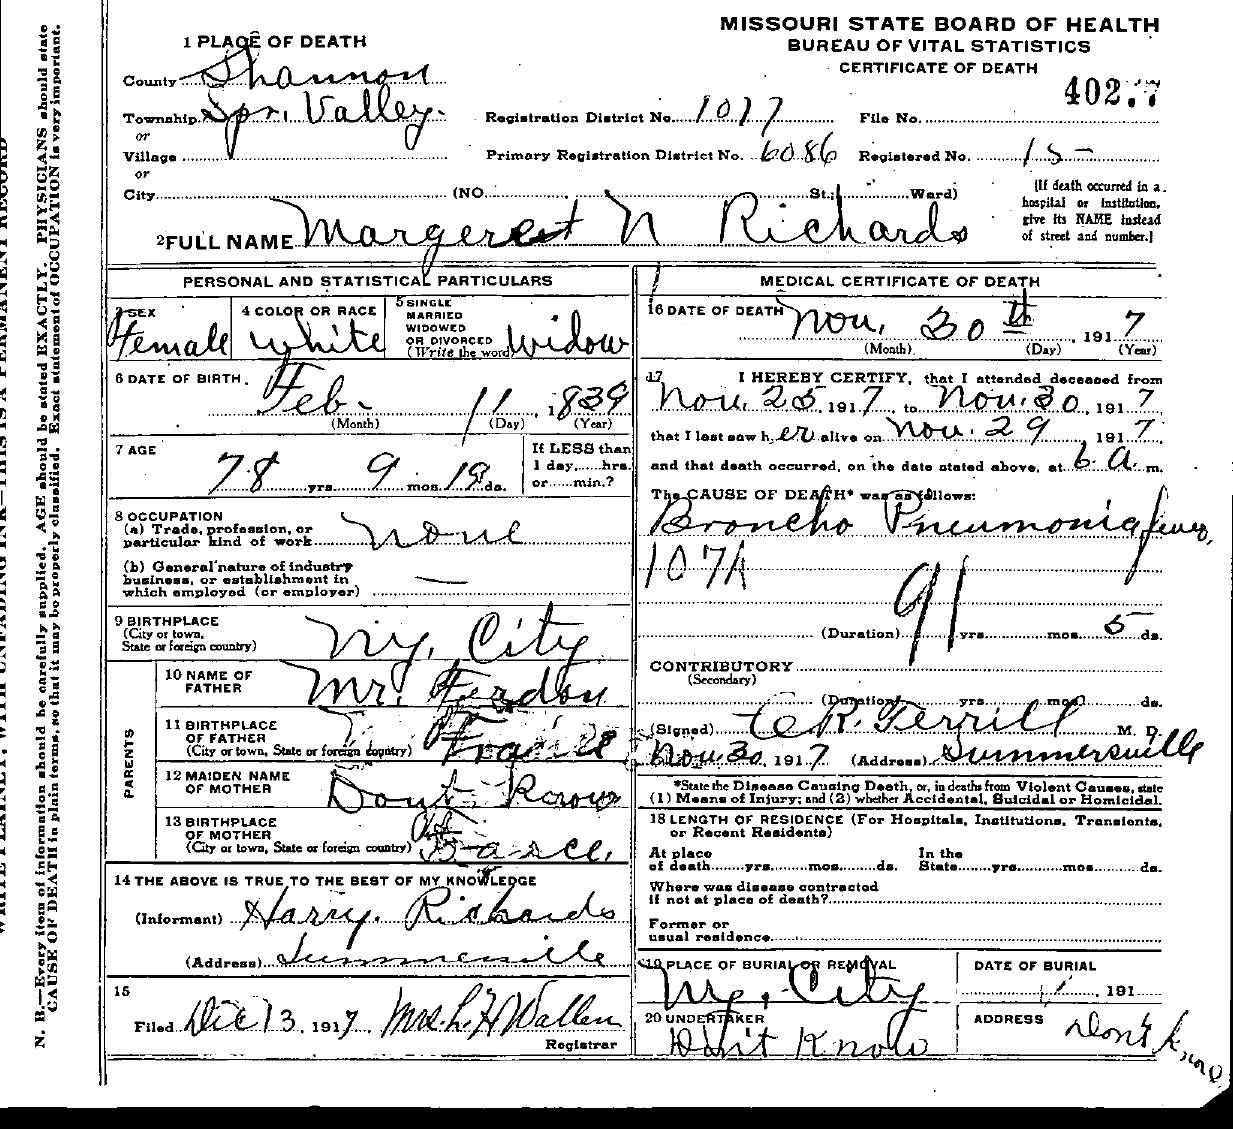 MISSOURI STATE BOARD OF HEALTH
BUREAU OF VITAL STATISTICS
CERTIFICATE OF DEATH
1 PLACE OF DEATH
County Shannon
Township Spr. Valley.
or
Village
or
City (NO. St.; Ward)
Registration District No. 1017 File No.
Primary Registration District No. 6086 Registered No. 15-
[If death occurred in a hospital or institution, give its NAME instead of street and number.]
2 FULL NAME Margerest N Richards
PERSONAL AND STATISTICAL PARTICULARS
3 SEX
Female
4 COLOR OR RACE
White
5 SINGLE
MARRIED
WIDOWED
OR DIVORCED
(Write the word) Widow
6 DATE OF BIRTH.
Feb. 11, 1839
(Month) (Day) (Year)
7 AGE
78 yrs. 9 mos. 19 ds.
If LESS than
1 day,......hrs.
or......min.?
8 OCCUPATION
(a) Trade, profession, or
particular kind of work None
(b) General nature of industry
business, or establishment in
which employed (or employer) —
9 BIRTHPLACE
(City or town,
State or foreign country)
Ny. City
PARENTS
10 NAME OF
FATHER
Mr. Ferdon
11 BIRTHPLACE
OF FATHER
(City or town, State or foreign country) France
12 MAIDEN NAME
OF MOTHER
Don't Know
13 BIRTHPLACE
OF MOTHER
(City or town, State or foreign country)
14 THE ABOVE IS TRUE TO THE BEST OF MY KNOWLEDGE
(Informant) Harry. Richards
(Address) Summersville
15
Filed Dec 13, 1917 Mrs. L. H Wallen
Registrar
MEDICAL CERTIFICATE OF DEATH
16 DATE OF DEATH Nov. 30th, 1917
(Month) (Day) (Year)
17 I HEREBY CERTIFY, that I attended deceased from
Nov. 25, 1917, to Nov. 30, 1917
that I last saw her alive on Nov. 29, 1917,
and that death occurred, on the date stated above, at 6 a m.
The CAUSE OF DEATH* was as follows:
Broncho Pneumonia
107A
91
(Duration) yrs. mos. 5 ds.
CONTRIBUTORY
(Secondary)
(Duration) yrs. mos. ds.
(Signed) C. R. Terrill M. D.
Nov. 30, 1917 (Address) Summersville
*State the Disease Causing Death, or, in deaths from Violent Causes, state
(1) Means of Injury; and (2) whether Accidental, Suicidal or Homicidal.
18 LENGTH OF RESIDENCE (For Hospitals, Institutions, Transients,
or Recent Residents)
At place In the
of death......yrs......mos......ds. State......yrs......mos......ds.
Where was disease contracted
if not at place of death?
Former or
usual residence
19 PLACE OF BURIAL OR REMOVAL
Ny. City
DATE OF BURIAL
191
20 UNDERTAKER
Don't Know
ADDRESS
Don't Know
N. B.—Every item of information should be carefully supplied. AGE should be stated EXACTLY. PHYSICIANS should state
CAUSE OF DEATH in plain terms, so that it may be properly classified. Exact statement of OCCUPATION is very important.